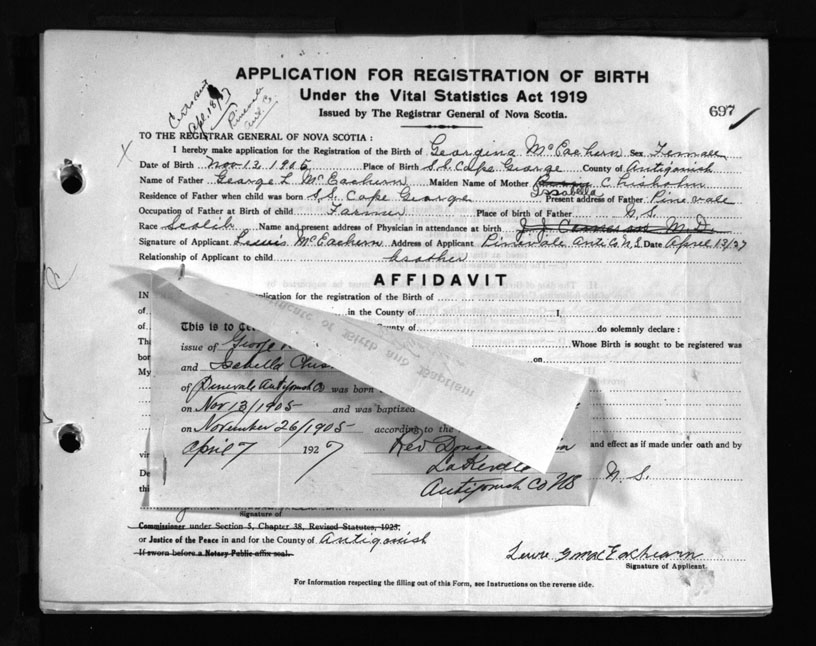 APPLICATION FOR REGISTRATION OF BIRTH
Under the Vital Statistics Act 1919
Issued by The Registrar General of Nova Scotia.
697
Apl. 18/27
TO THE REGISTRAR GENERAL OF NOVA SCOTIA:
I hereby make application for the Registration of the Birth of Georgina McEachern Sex Female
Date of Birth Nov 13 1905 Place of Birth S.S. Cape George County of Antigonish
Name of Father George L McEachern Maiden Name of Mother Chisholm
Issabella
Residence of Father when child was born S.S. Cape George Present address of Father Pinevale
Occupation of Father at Birth of child Farmer Place of birth of Father N.S.
Race Scotch Name and present address of Physician in attendance at birth
Signature of Applicant McEachern Address of Applicant Pinevale Ant. Co N.S Date April 13/27
Relationship of Applicant to child brother
AFFIDAVIT
IN plication for the registration of the Birth of
of in the County of I,
of unty of do solemnly declare:
Tha Whose Birth is sought to be registered was
bor on
My
This is to Ce
issue of George
and Isabella Chis
of Pinevale Antigonish Co was born
on Nov 13/1905 and was baptized
on November 26/1905 according to the
April 7 1927 Rev Don
Antigonish Co NS
and effect as if made under oath and by
vir
De N. S.
thi
Signature of
Commissioner under Section 5, Chapter 38, Revised Statutes, 1923,
or Justice of the Peace in and for the County of Antigonish
If sworn before a Notary Public affix seal.
MacEachearn
Signature of Applicant.
For Information respecting the filling out of this Form, see Instructions on the reverse side.